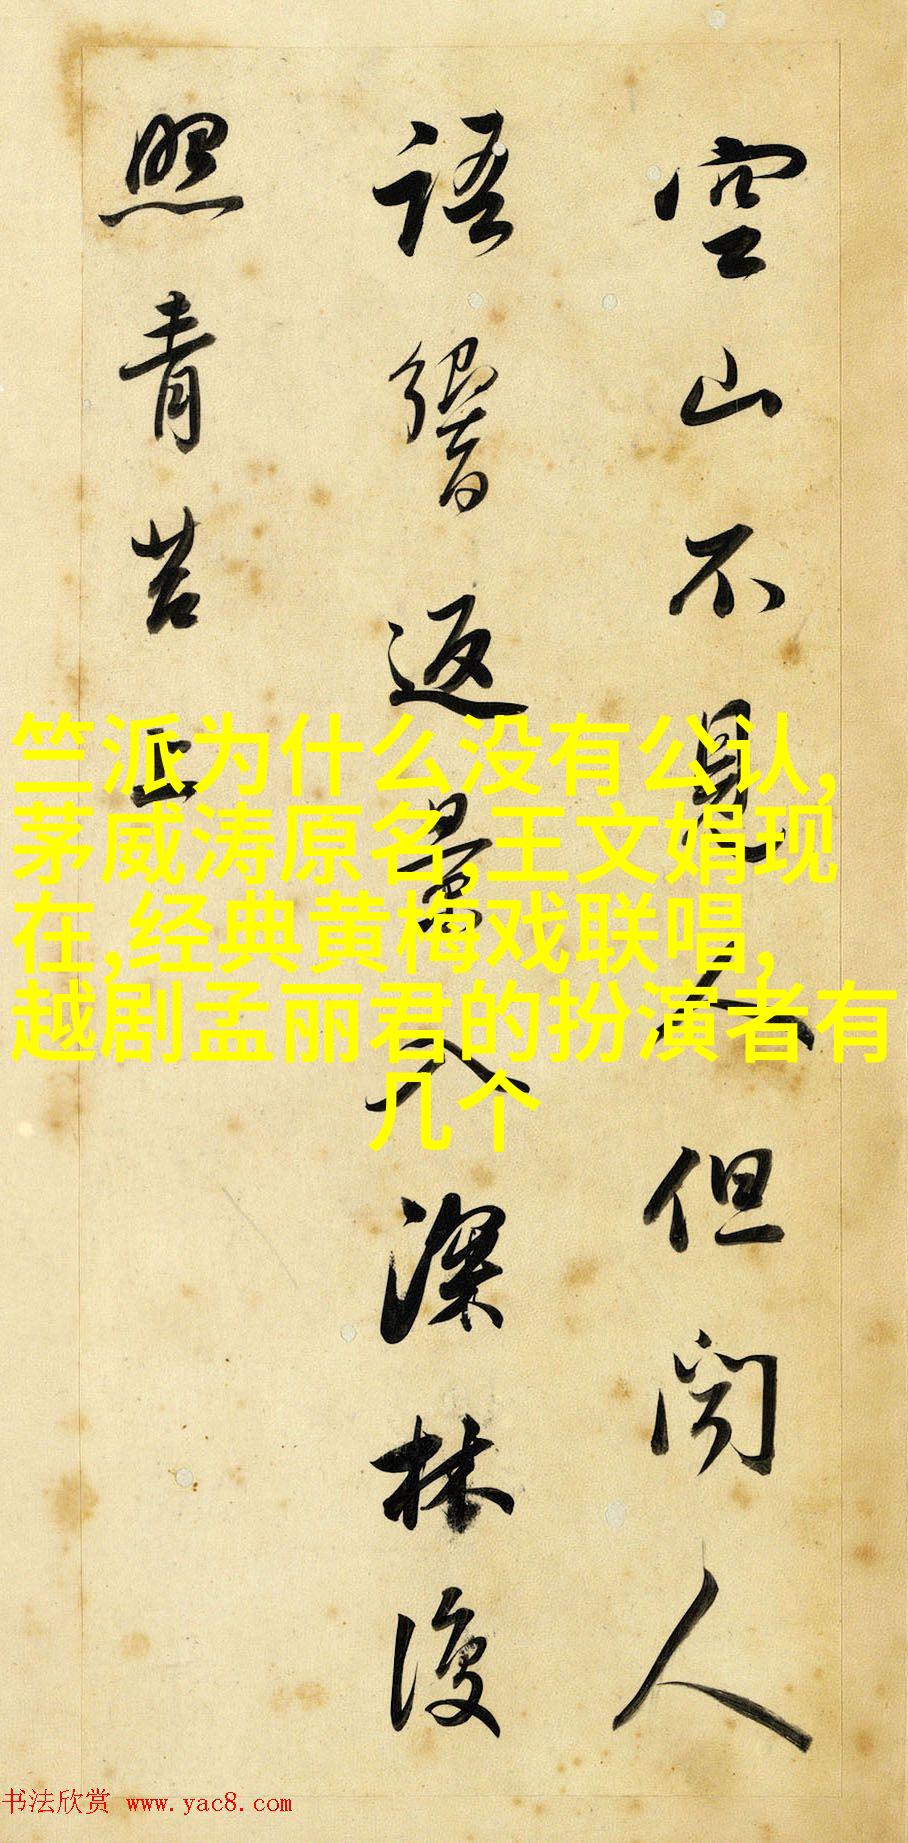 空山不見人但聞人
語響返景入深林復
照青苔上
竺派为什么没有公认,
茅威涛原名,王文娟现
在,经典黄梅戏联唱,
越剧孟丽君的扮演者有
几个
书法欣赏 www.yac8.com